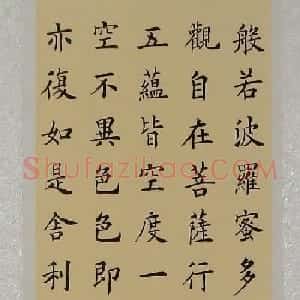 般若波羅蜜多
觀自在菩薩行
五蘊皆空度一
空不異色色即
亦復如是舍利
Shufaziliao.COM